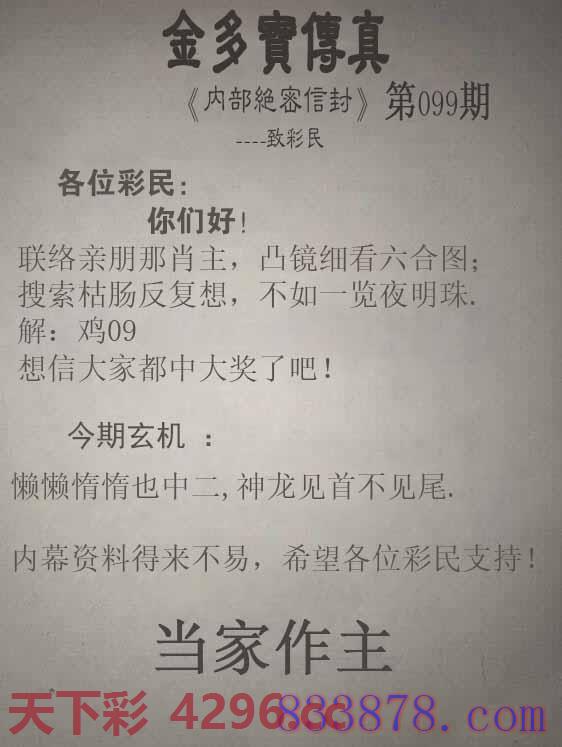 金多寶傳真
《内部絶密信封》第099期
----致彩民
各位彩民:
你们好!
联络亲朋那肖主，凸镜细看六合图;
搜索枯肠反复想，不如一览夜明珠.
解：鸡09
想信大家都中大奖了吧!
今期玄机 ：
懒懒惰惰也中二,神龙见首不见尾.
内幕资料得来不易，希望各位彩民支持!
当家作主
天下彩 4296.cc
883878.com